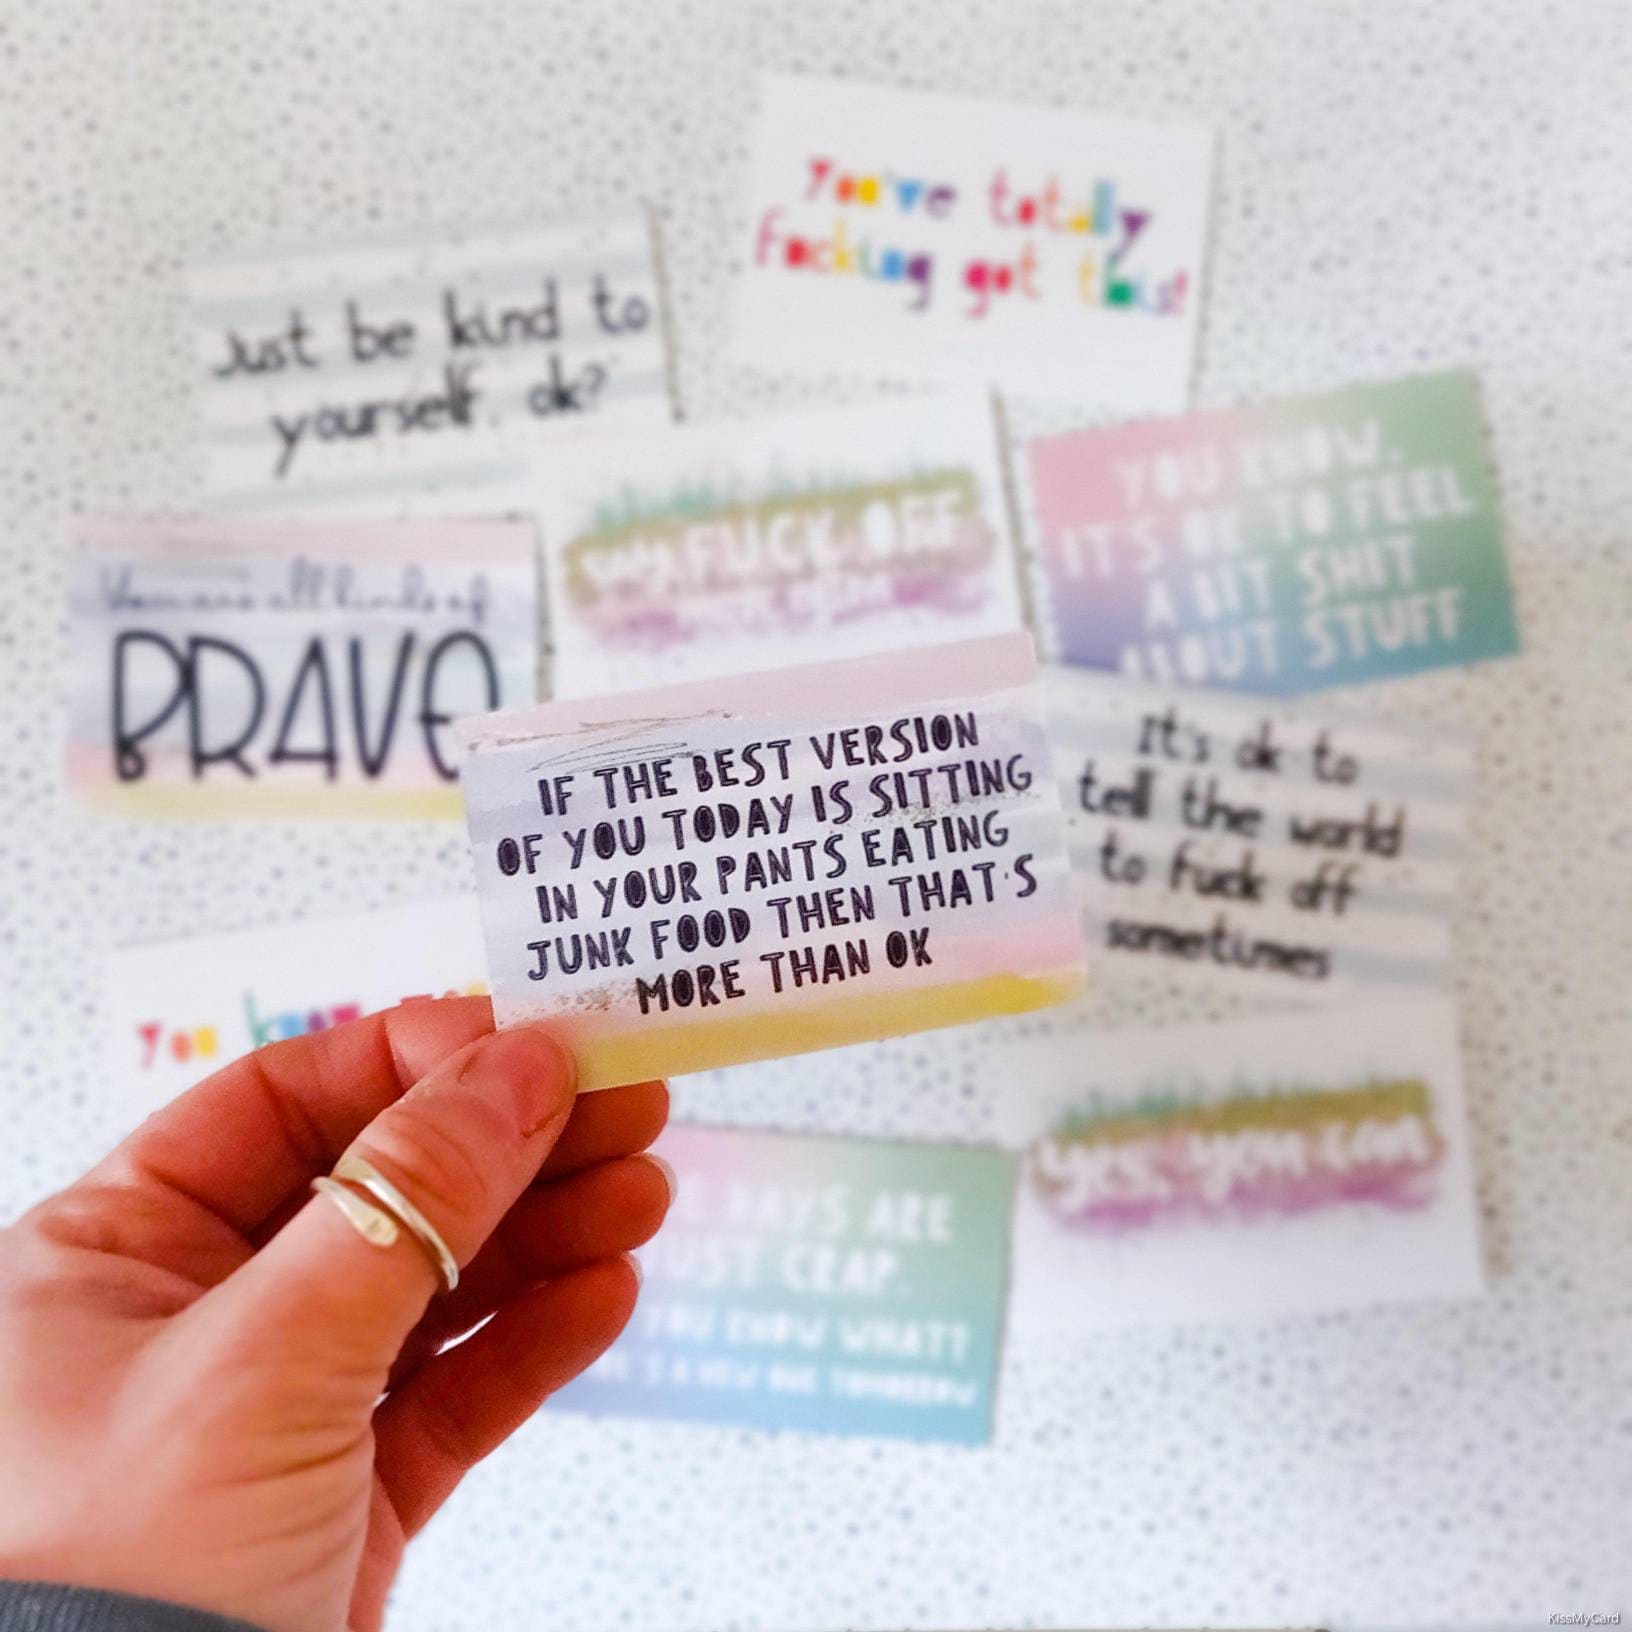 You've totally
fucking got this!
Just be kind to
yourself. ok?
YOU KNOW.
IT'S OK TO FEEL
A BIT SHIT
ABOUT STUFF
FUCK OFF
You are all kinds of
BRAVE
IF THE BEST VERSION
OF YOU TODAY IS SITTING
IN YOUR PANTS EATING
JUNK FOOD THEN THAT'S
MORE THAN OK
It's ok to
tell the world
to fuck off
sometimes
You
yes, you can
DAYS ARE
JUST CRAP.
YOU KNOW WHAT?
A NEW ONE TOMORROW
KissMyCard